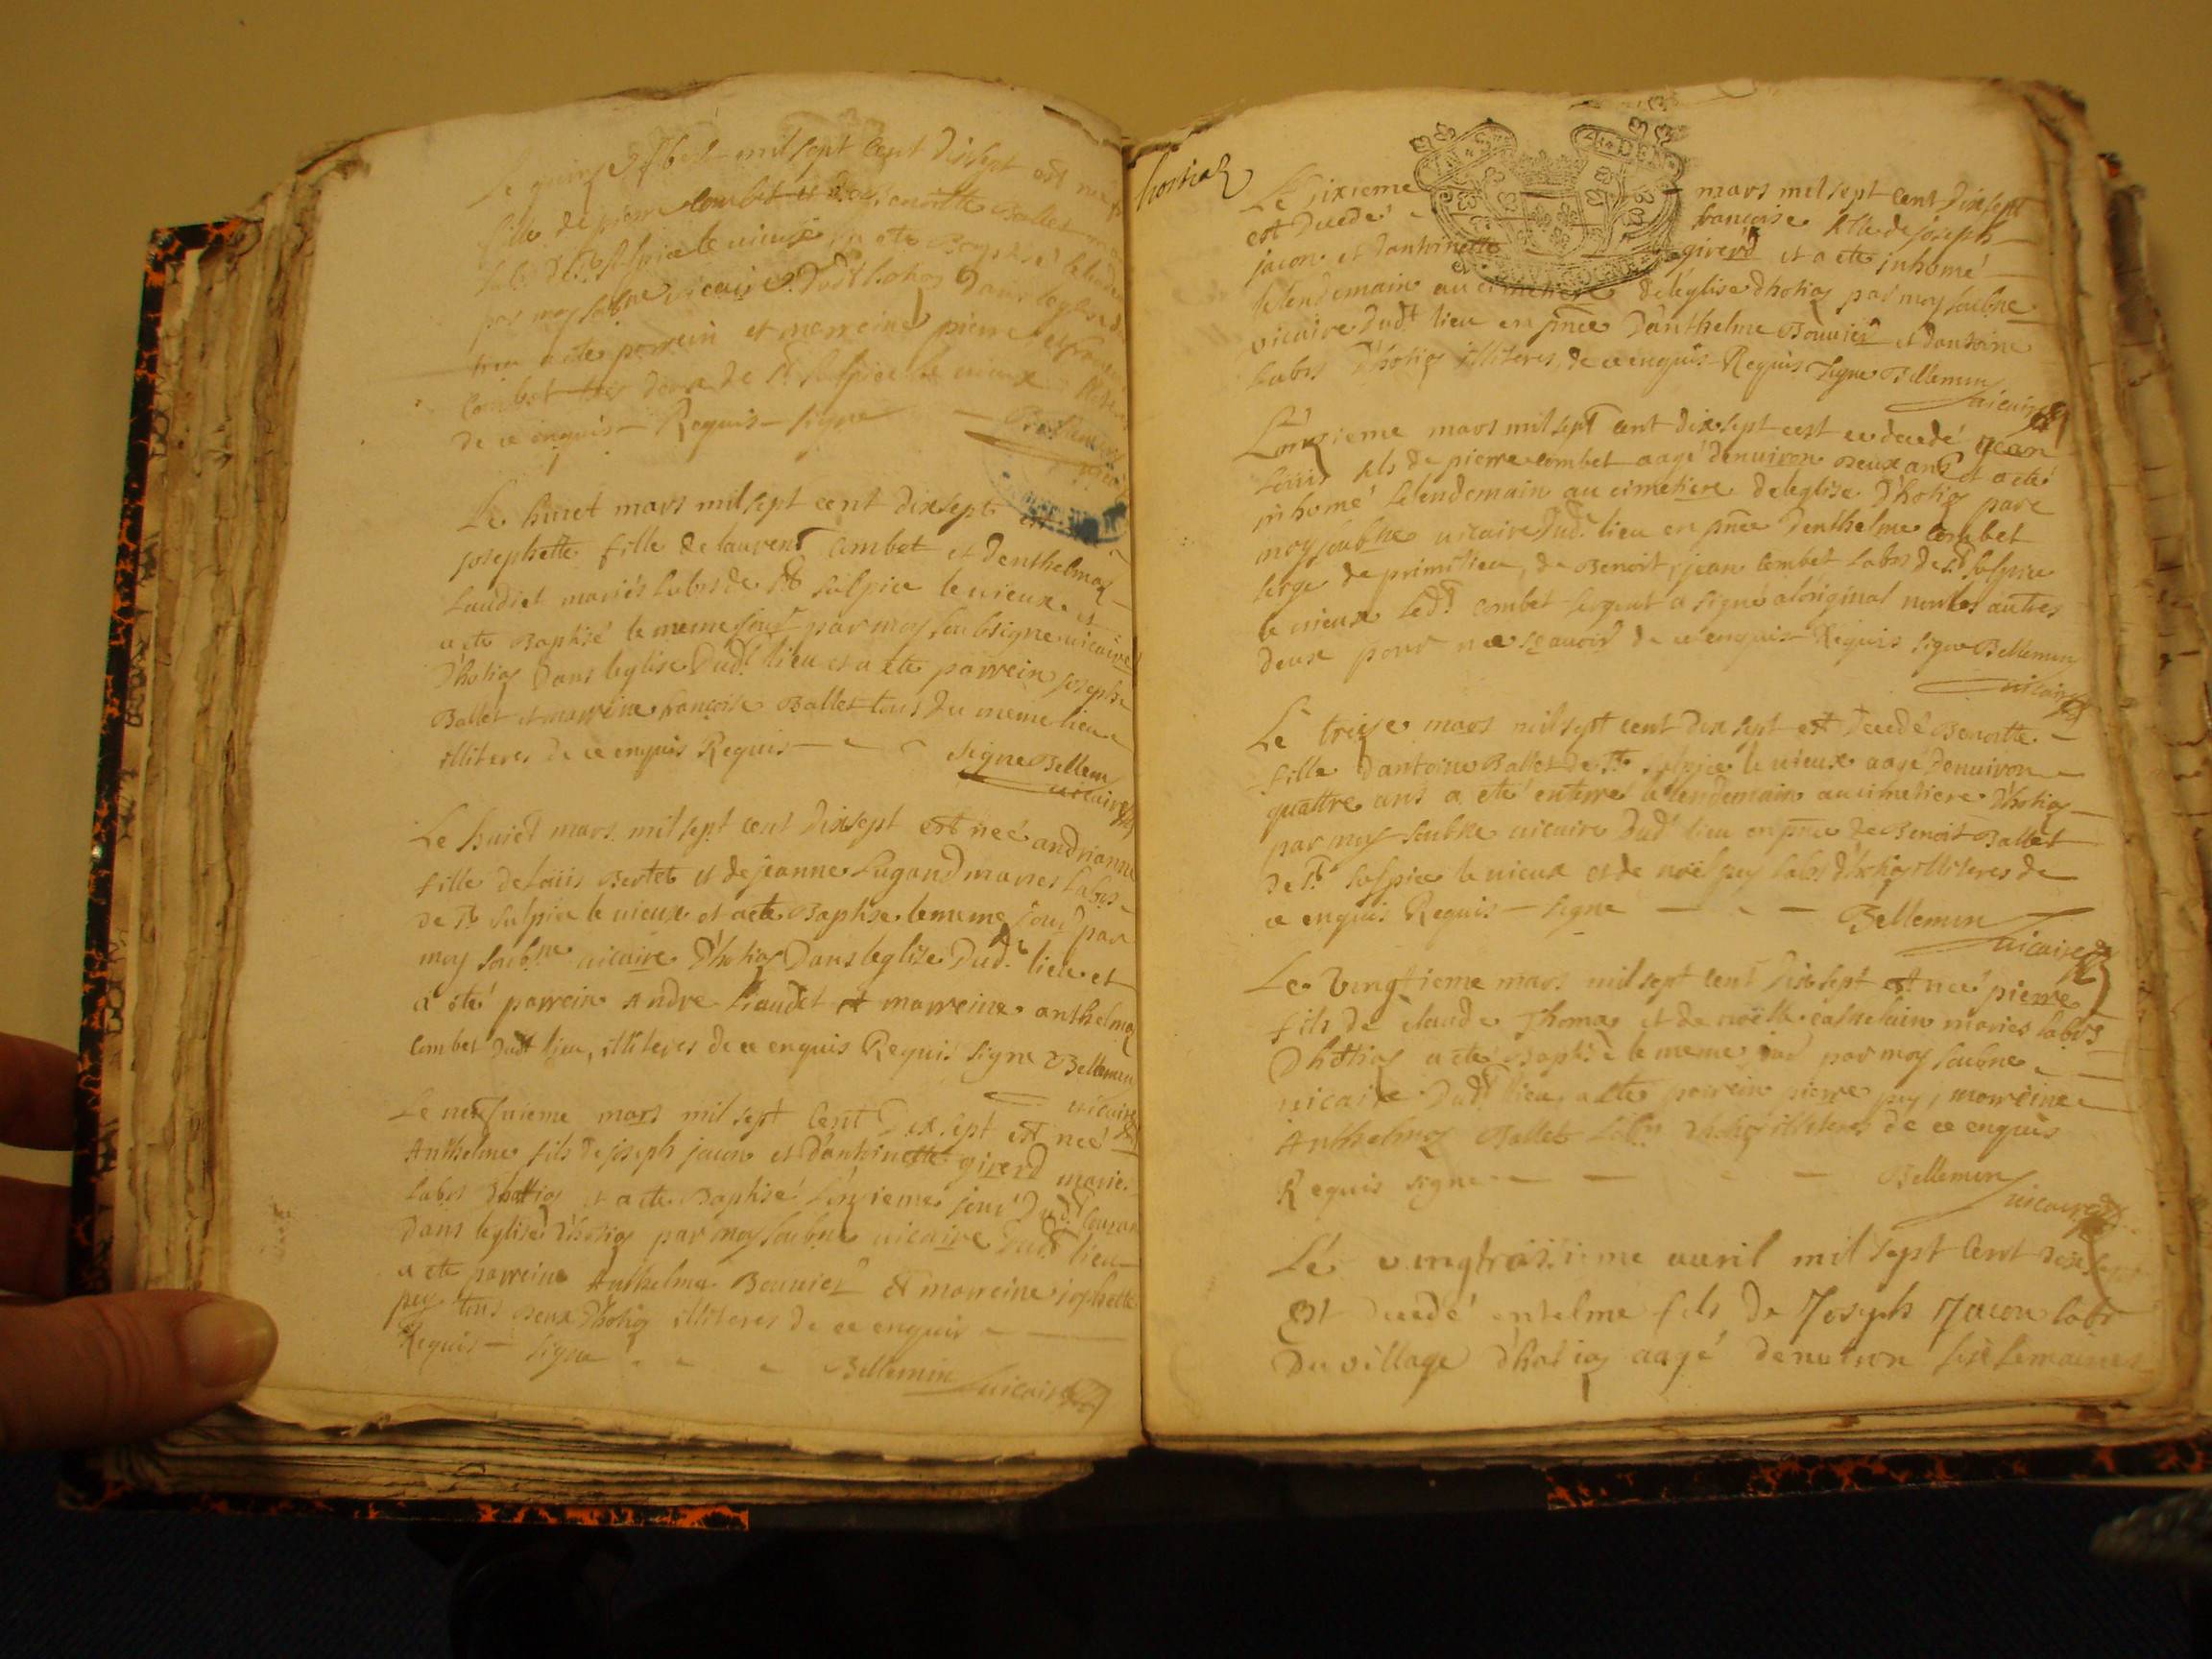 Le quinze mil sept cent dix sept est née
fille de pierre Combet et Ballet
St Sulpice le vieux a ete Baptisé
par moy vicaire Dudt hotiaz Dans leglise
a ete parrein et marreine pierre
Combet tous deux de St Sulpice le vieux
de ce enquis Requis signe
Le huict mars mil sept cent dix sept est
josephette fille de laurent Combet et Denthelmaz
Laudiet mariés Labrs de St Sulpice le vieux et
a ete Baptisé le meme jour par moy soubsigne vicaire
Dhotiaz Dans leglise Dudt lieu et a ete parrein joseph
Ballet et marreine françoise Ballet tous du meme lieu
illiteres de ce enquis Requis
signe Bellemin
vicaire
Le huict mars mil sept cent dix sept est neé andrianne
fille de Loüis Bertet et de jeanne Lugand maries Labrs
de St Sulpice le vieux et a ete Baptise le meme jour par
moy soubne vicaire Dhotiaz Dans leglise Dudt lieu et
a eté parrein Andre Laudet et marreine anthelmaz
Combet dudt lieu, illiteres de ce enquis Requis signe Bellemin
vicaire
Le neufvieme mars mil sept Cent Dix sept est neé
Anthelme fils de joseph jacon et dantoinette girerd marie
Labrs Dhottiaz et a ete Baptisé Lonzieme jour Dudt
Dans leglise Dhotiaz par moy soubne vicaire Dudt lieu
a ete parreine Anthelme Bouvier et marreine josephette
puy tous deux Dhotiaz illiteres de ce enquis
Requis signe Bellemin vicaire
hostiaz
Le sixieme mars mil sept cent dix sept
est Decedé françoise fille de joseph
jacon et dantoinette girerd et a ete inhomé
le lendemain au cimetiere deleglise dhotiaz par moy soubne
vicaire dudt lieu en pnce Danthelme Bouvier et dantoine
Labrs Dhotiaz illiteres, de ce enquis Requis signe Bellemin
vicaire
Lonzieme mars mil sept cent dix sept est decedé jean
Loüis fils de pierre Combet aagé denviron deux ans et a eté
inhomé le lendemain au cimetiere deleglise Dhotiaz par
moy soubne vicaire Dudt lieu en pnce Denthelme Combet
de Benoit, jean Combet Labrs de St Sulpice
le vieux Ledt Combet sergent a signé aloriginal non les autres
deux pour ne scavoir de ce enquis Requis signe Bellemin
vicaire
Le treize mars mil sept cent dix sept est Decedé Benoitte
fille dantoine Ballet de St Sulpice le vieux aagé denviron
quattre ans a eté enterré le lendemain au cimetiere Dhotiaz
par moy soubne vicaire Dudt lieu en pnce de Benoit Ballet
de St Sulpice le vieux et de noël puy Labrs dhotiaz illiteres de
ce enquis Requis signe Bellemin
vicaire
Le Vingtieme mars mil sept cent dix sept est neé pierre
fils de claude Thomas et de noëlle maries Labrs
Dhotiaz a ete Baptisé le meme jour par moy soubne
vicaire Dudt lieu a ete parrein pierre puy, marreine
Anthelmaz Ballet Labrs dhotiaz illiteres de ce enquis
Requis signe Bellemin
vicaire
Le vingtroisieme avril mil sept cent dix sept
Est decedé entelme fils de Joseph Jacon labr
Du village dhotiaz aagé denviron six semaines